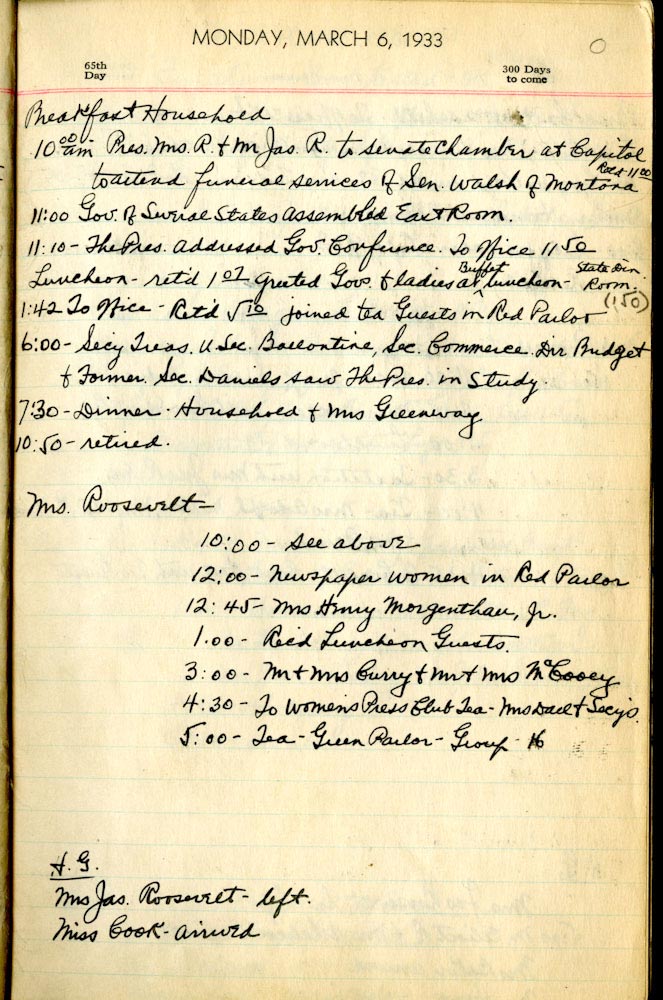 MONDAY, MARCH 6, 1933
65th
Day
300 Days
to come
Breakfast Household
10 00 am Pres. Mrs. R. & Mr Jas. R. to Senate Chamber at Capitol
to attend funeral services of Sen. Walsh of Montana Ret'd 11 00
11:00 Gov. of Several States assembled East Room.
11:10 - The Pres. addressed Gov. Conference. To Office 11 50
Luncheon - ret'd 1 07 greeted Govs. & ladies at Buffet luncheon - State Din. Room. (150)
1:42 To Office - Ret'd 5 10 joined tea Guests in Red Parlor
6:00 - Secy Treas. U. Sec. Ballontine, Sec. Commerce. Dir Budget
& Former. Sec. Daniels saw The Pres. in Study.
7:30 - Dinner - Household & Mrs Greenway
10:50 - retired.
Mrs. Roosevelt -
10:00 - See above
12:00 - Newspaper women in Red Parlor
12:45 - Mrs Henry Morgenthau, Jr.
1:00 - Rec'd Luncheon Guests.
3:00 - Mr & Mrs Curry & Mr & Mrs McCooey
4:30 - To Womens Press Club Tea - Mrs & Secys.
5:00 - Tea - Green Parlor - Group 16
H. G.
Mrs Jas. Roosevelt - left.
Miss Cook - arrived